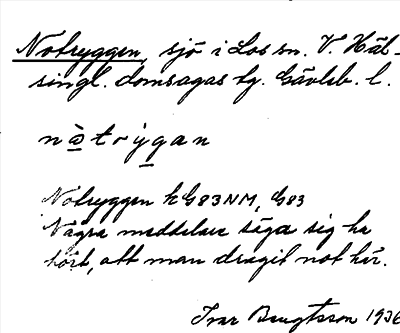 Notryggen, sjö i Los sn. V. Häl-
singl. domsagas tg. Gävleb. l.
nòtrỳgan
Notryggen kG83NM, G83
Några meddelare säga sig ha
hört, att man dragit not här.
Ivar Bengtsson 1936